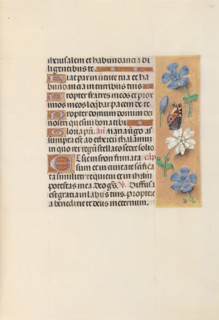 iherusalem et habundancia di
ligentibus te
Fiat pax in virtute tua et ha
bundancia in turribus tuis
Propter fratres meos et proxi
mos meos loquebar pacem de te
Propter domum domini dei
nostri quesivi bona tibi
Gloria pri. an Maria virgo as
sumpta est ad ethereum thalamum
in quo rex regum stellato sedet solio
Et sic in syon firmata cap
sum et in civitate sanctifica
ta similiter requievi et in iherusalem
potestas mea. Deo gras. V. Diffusa
est gratia in labiis tuis. Propterea
benedixit te deus in eternum.